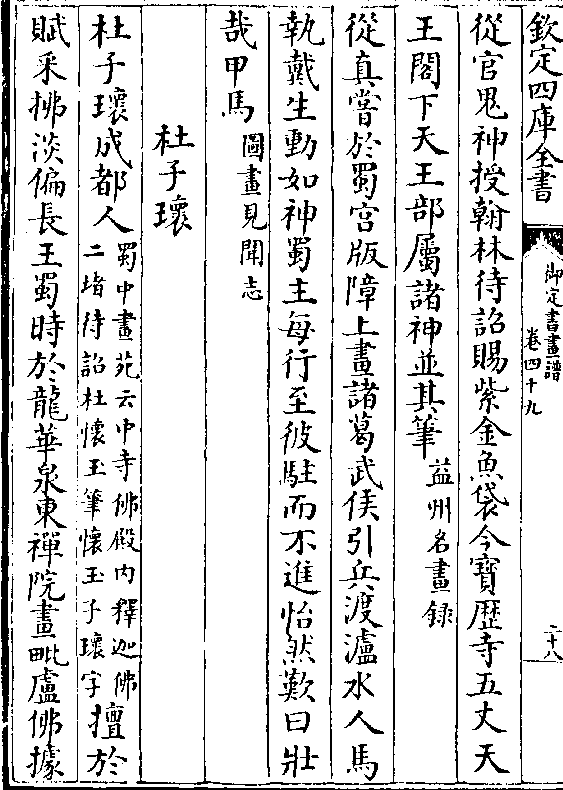 欽定四庫全書
御定書畫譜
卷四十九
二十八
從官鬼神授翰林待詔賜紫金魚袋今寶歴寺五丈天
王閣下天王部屬諸神並其筆益州名畫録
從真嘗於蜀宫版障上畫諸葛武侯引兵渡瀘水人馬
執戴生動如神蜀主每行至彼駐而不進怡然歎曰壯
哉甲馬圖畫見聞志
杜子瓌
杜子瓌成都人蜀中畫苑云中寺佛殿内釋迦佛
二堵待詔杜懷玉筆懷玉子瓌字擅於
賦采拂淡偏長王蜀時於龍華泉東禪院畫毗盧佛據